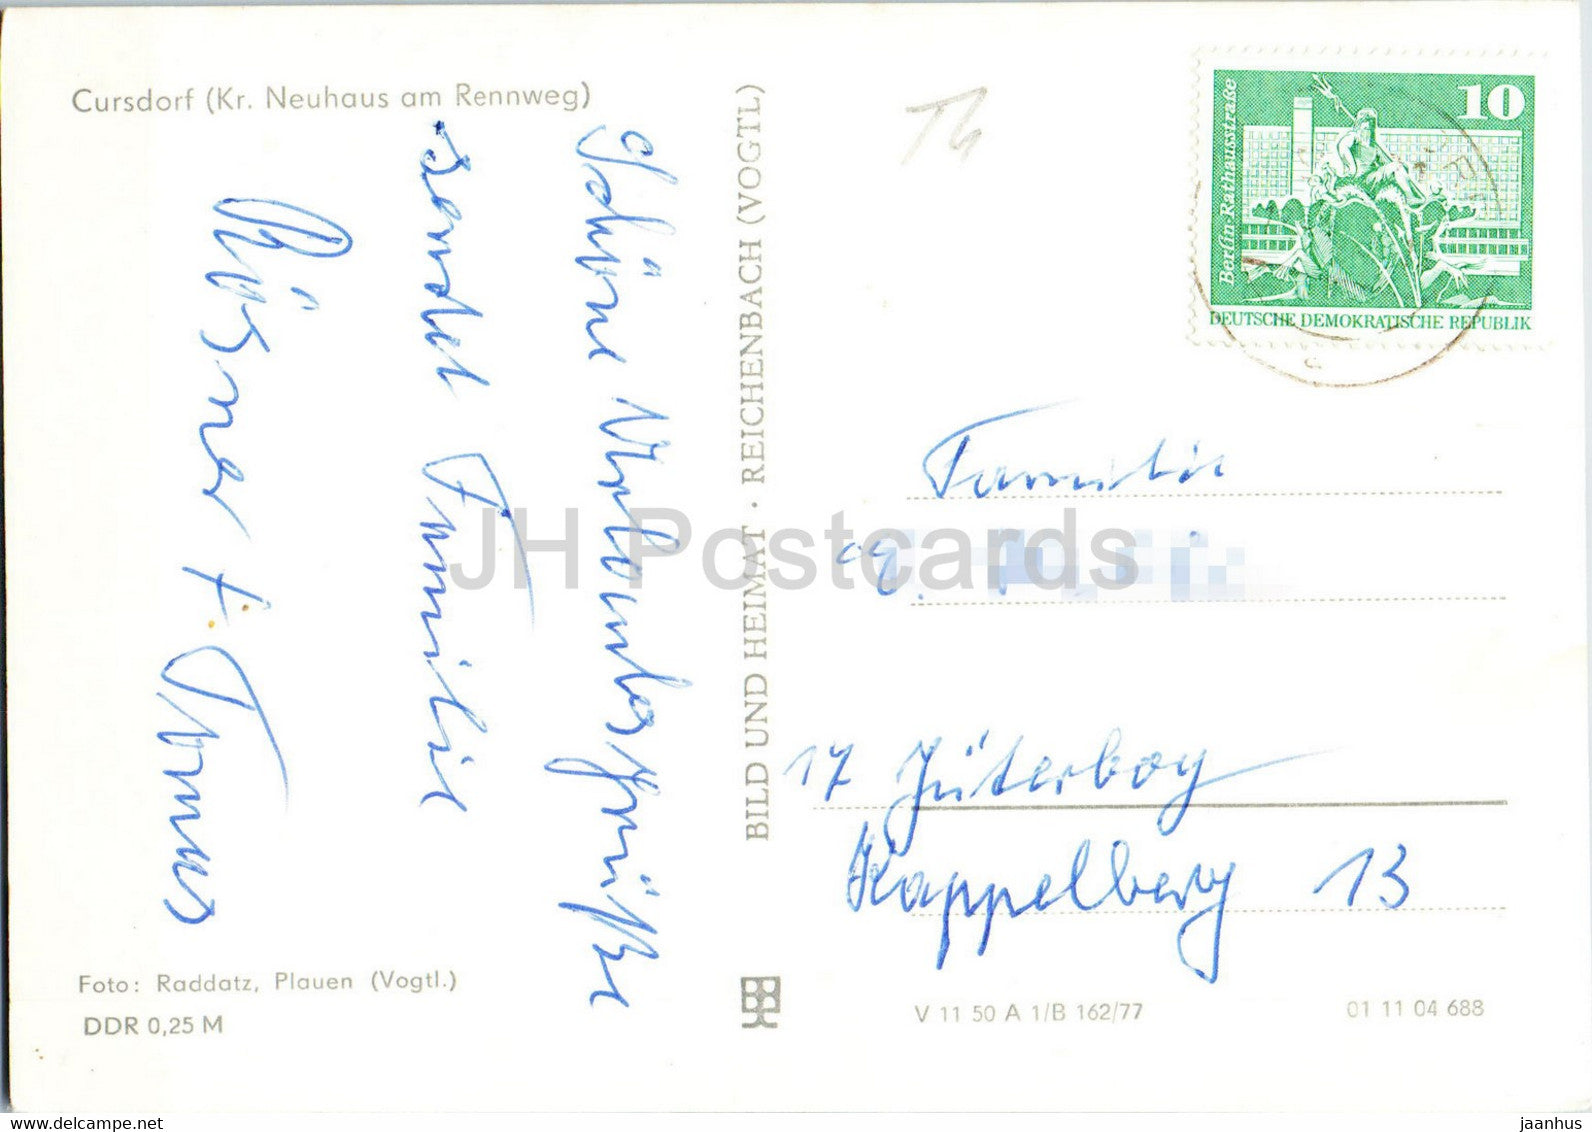 Cursdorf (Kr. Neuhaus am Rennweg)
Schöne Urlaubsgrüße
sendet Familie
Rösner + Thomas
Foto: Raddatz, Plauen (Vogtl.)
DDR 0,25 M
BILD UND HEIMAT · REICHENBACH (VOGTL)
Th
10
Berlin-Rathausstraße
DEUTSCHE DEMOKRATISCHE REPUBLIK
Familie
17 Jüterbog
Kappelberg 13
V 11 50 A 1/B 162/77
01 11 04 688
JH Postcards
www.delcampe.net
jaanhus